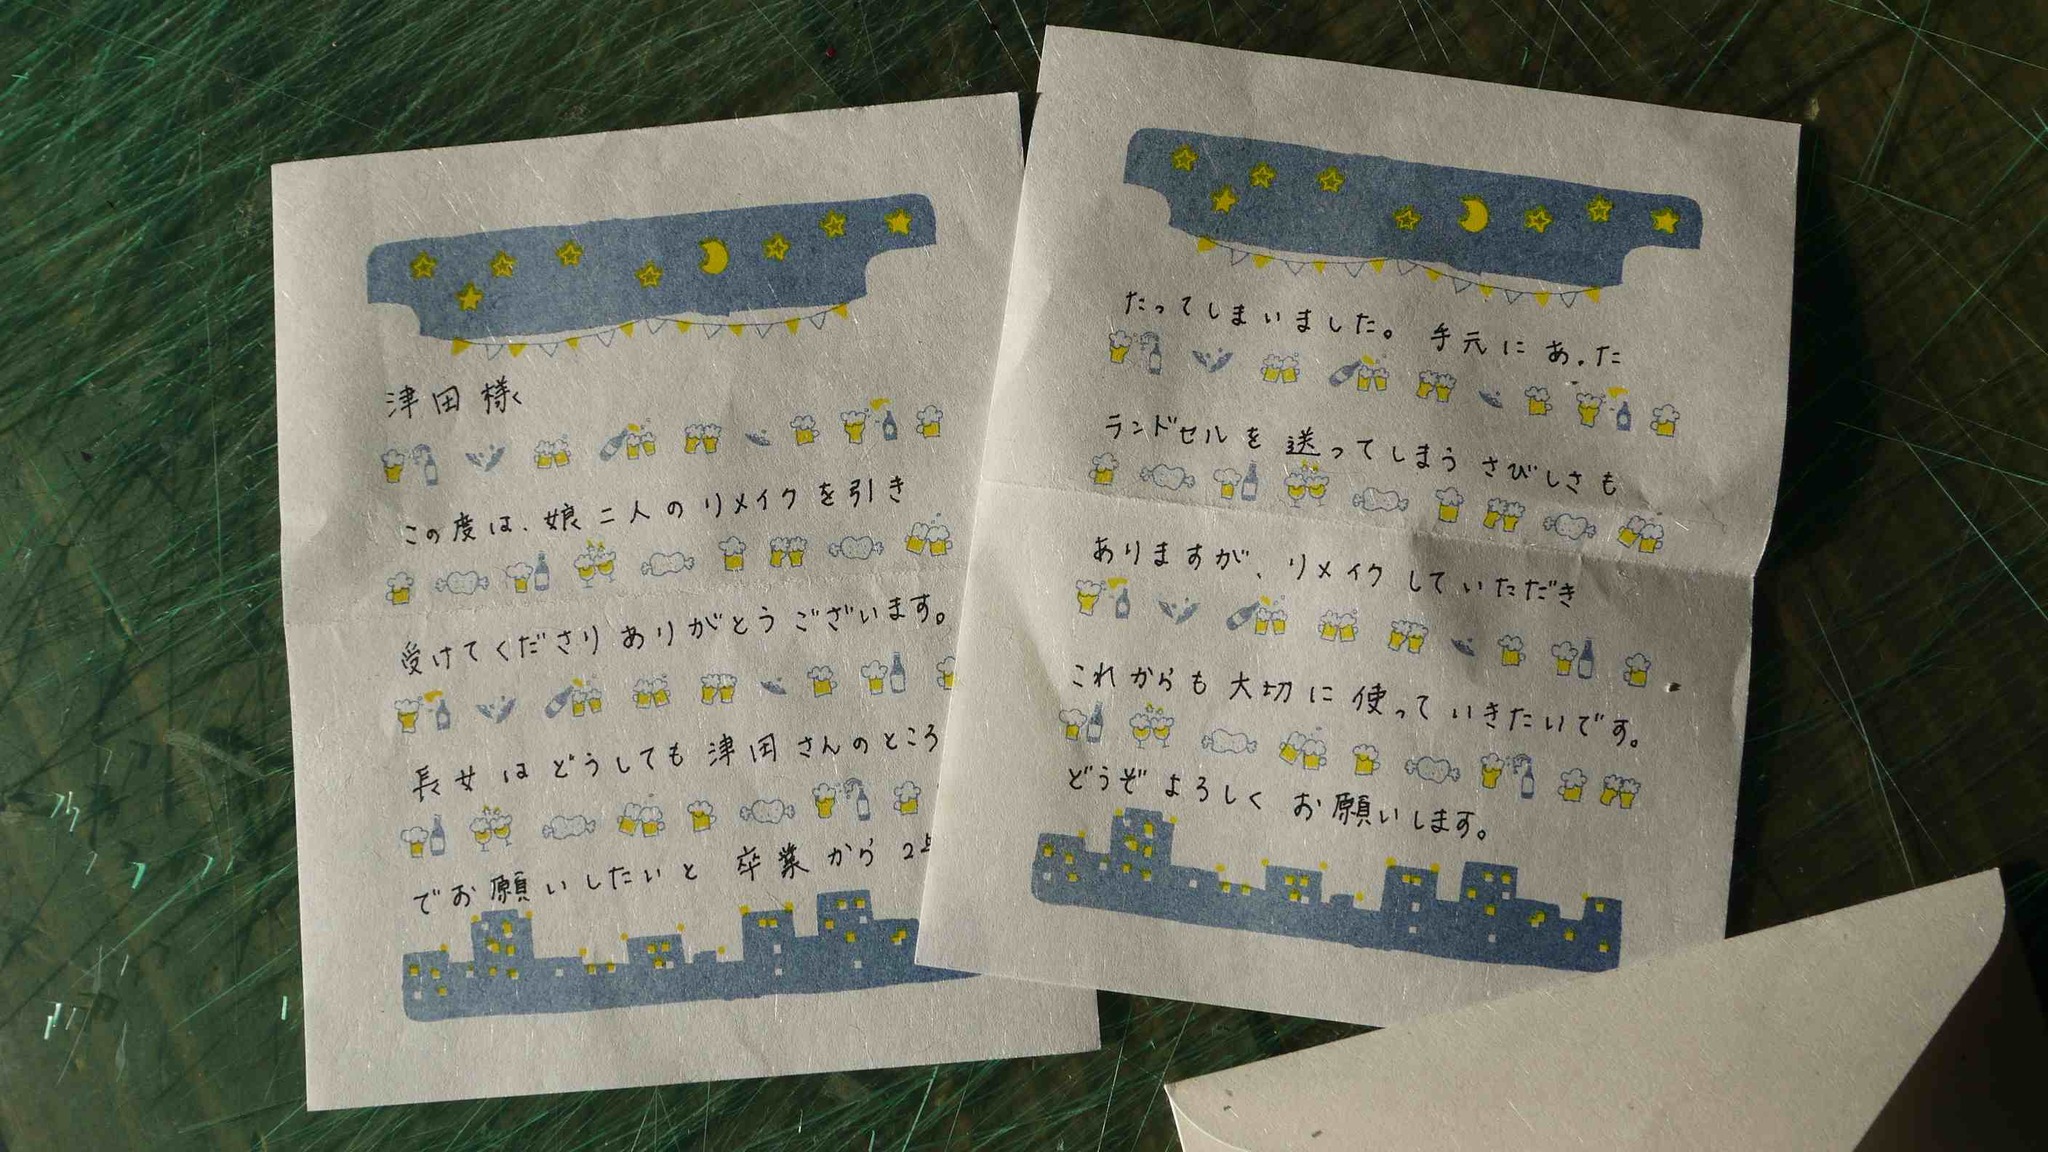 津田様
この度は、娘二人のリメイクを引き
受けてくださりありがとうございます。
長女はどうしても津田さんのところ
でお願いしたいと卒業から2
たってしまいました。手元にあった
ランドセルを送ってしまうさびしさも
ありますが、リメイクしていただき
これからも大切に使っていきたいです。
どうぞよろしくお願いします。